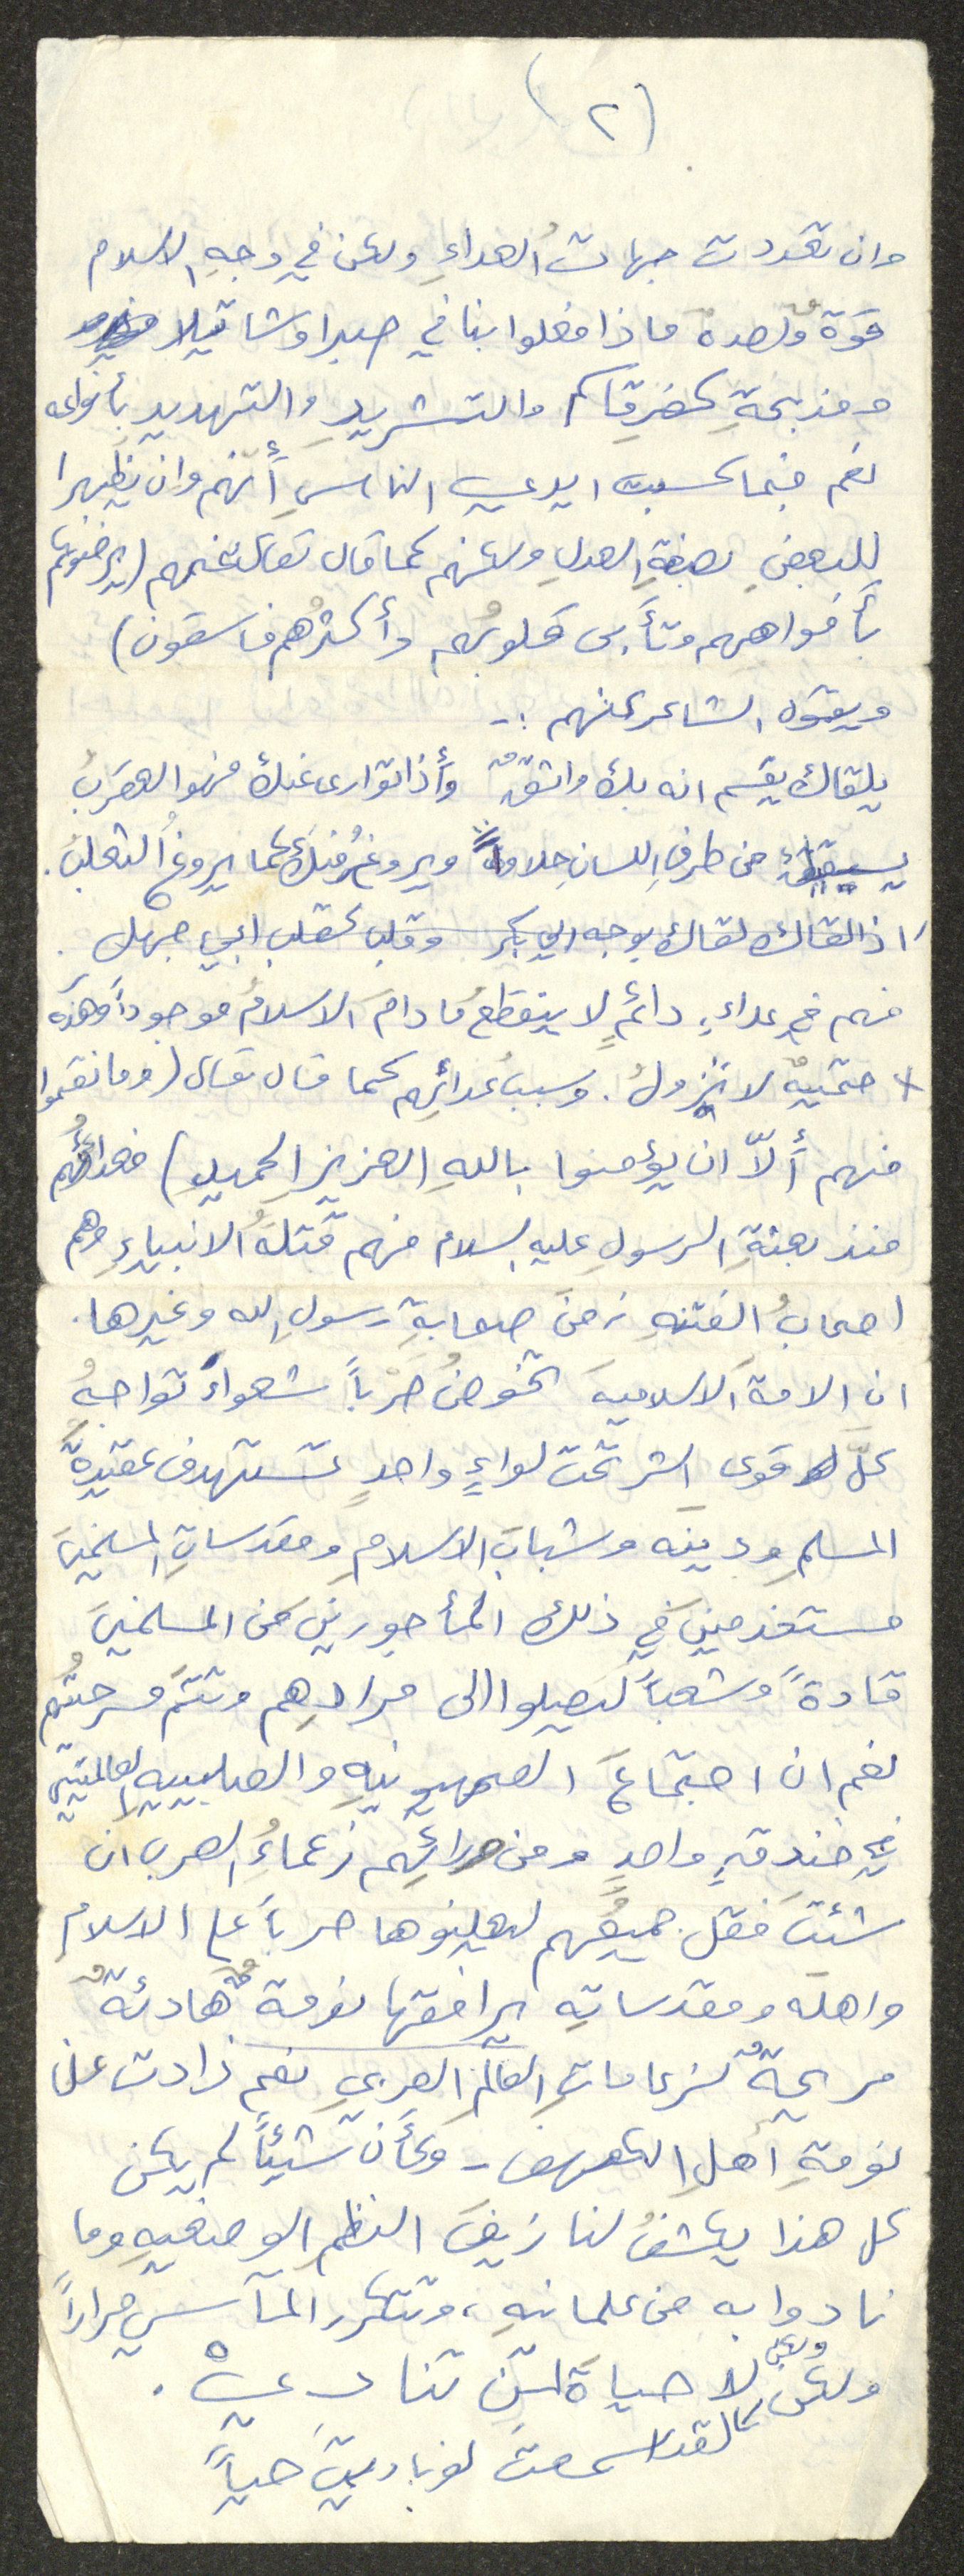 (٢)
وان تعددت جهات العداءِ ولكن في وجهِ الاسلام
قوةٌ ولصده ماذا فعلوا بنا في صبرا وشاتيلا
ومذبحةِ كفرقاسم والتشريدِ والتهديدِ بأنواعه
نعم فبما كسبت ايدي الناسِ أنهم وان يظهرا
للبعضِ بصبغةِ العدلِ ولكنهم كما قال تعالى عنهم (يرضونكم
بأفواههم وتأبى قلوبُهم وأكثرُهم فاسقون)
ويقول الشاعر عنهم :-
يلقاك يقسم انه بك واثقٌ وأذا توارى عنك فهو العقربُ
يسقيك من طرفِ اللسانِ حلاوةً ويروغُ منك كما يروغُ الثعلبُ.
اذا لقاك لقاك بوجه ابي بكر وقلب كقلب ابي جهل .
فهم في عداءٍ دائمٍ لا ينقطعُ مادامَ الاسلامُ موجوداً وهذه
حتميةٌ لا تزولُ. وسببُ عدائِهم كما قال تعالى (وما نقموا
منهم ألّا ان يؤمنوا باللهِ العزيزِ الحميدِ) فعداؤُهم
منذ بعثةِ الرسولِ عليه السلام فهم قتلةُ الانبياءِ وهم
اصحابُ الفتنهِ زمنَ صحابةِ رسولِ الله وغيرها.
ان الامةَ الاسلاميةَ تخوضُ حرْباً شعواءَ تواجهُ
كلَّ قوى الشرِ تحت لواءٍ واحدٍ تستهدف عقيدةَ
المسلمِ ودينَه وشبابَ الاسلامِ ومقدساتِ المسلمينَ
مستخدمينَ في ذلك المأجورينَ من المسلمينَ
قادةً وشعباً ليصلوا الى مرادِهم وتتمَّ مسرحيتُهم
نعم ان اجتماعَ الصهيونيهِ والصليبيهِ العالميتين
في خندقٍ واحدٍ ومن ورائِهم زعماءُ العربِ ان
شئتَ فقل جميعُهم ليعلنوها حرباً على الاسلامِ
واهله ومقدساتِه يرافقها نومةٌ هادئةٌ
مريحةٌ لزعاماتِ العالمِ العربيِ نعم زادت على
نومةِ أهلِ الكهف - وكأن شيئاً لم يكن
كل هذا يكشفُ لنا زيفَ النظمِ الوضعيهِ وما
نادوا به من علمانيهِ، وتتكرر المآسي مراراً
ولكن لا حياةَ لمن تنادي .
لقد اسمعت لو ناديتَ حياً
ولكن